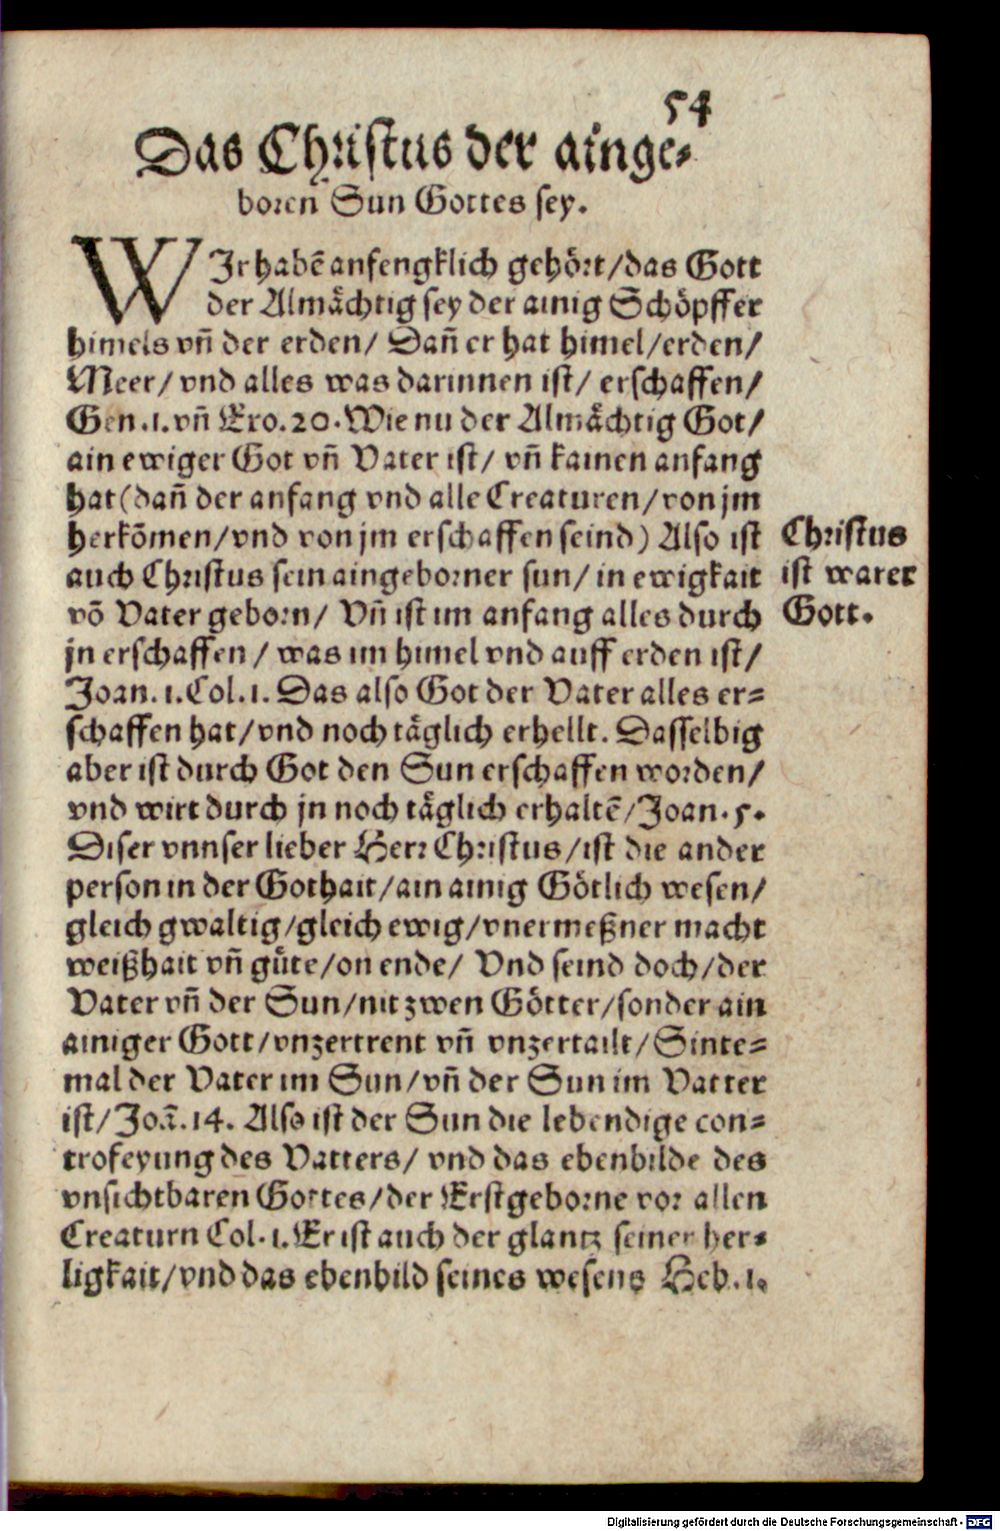 54
Das Christus der ainge-
boren̄ Sun Gottes sey.
WJr habē anfengklich gehört/das Gott
der Almaͤchtig sey der ainig Schöpffer
himels vn̄ der erden/ Dan̄ er hat himel/erden/
Meer/ vnd alles was darinnen ist/ erschaffen/
Gen.1. vn̄ Exo.20. Wie nu der Almaͤchtig Got/
ain ewiger Got vn̄ Vater ist/ vn̄ kainen anfang
hat (dan̄ der anfang vnd alle Creaturen/ von jm
herkōmen/vnd von jm erschaffen seind) Also ist
auch Christus sein aingeborner sun/ in ewigkait
vō Vater geborn/ Vn̄ ist im anfang alles durch
jn erschaffen / was im himel vnd auff erden ist/
Joan. 1. Col. 1. Das also Got der Vater alles er-
schaffen hat/vnd noch taͤglich erhellt. Dasselbig
aber ist durch Got den Sun erschaffen worden/
vnd wirt durch jn noch taͤglich erhaltē/Joan. 5.
Diser vnnser lieber Herr Christus/ist die ander
person in der Gothait/ain ainig Götlich wesen/
gleich gwaltig/gleich ewig/vnermeßner macht
weißhait vn̄ guͤte/on ende/ Vnd seind doch/der
Vater vn̄ der Sun/nit zwen Götter/sonder ain
ainiger Gott/vnzertrent vn̄ vnzertailt/Sinte-
mal der Vater im Sun/vn̄ der Sun im Vatter
ist/Joā.14. Also ist der Sun die lebendige con-
trofeyung des Vatters/ vnd das ebenbilde des
vnsichtbaren Gottes/der Erstgeborne vor allen
Creaturn Col.1. Er ist auch der glantz seiner her-
ligkait/vnd das ebenbild seines wesens Heb.1.
Christus
ist warer
Gott.
Digitalisierung gefördert durch die Deutsche Forschungsgemeinschaft - DFG